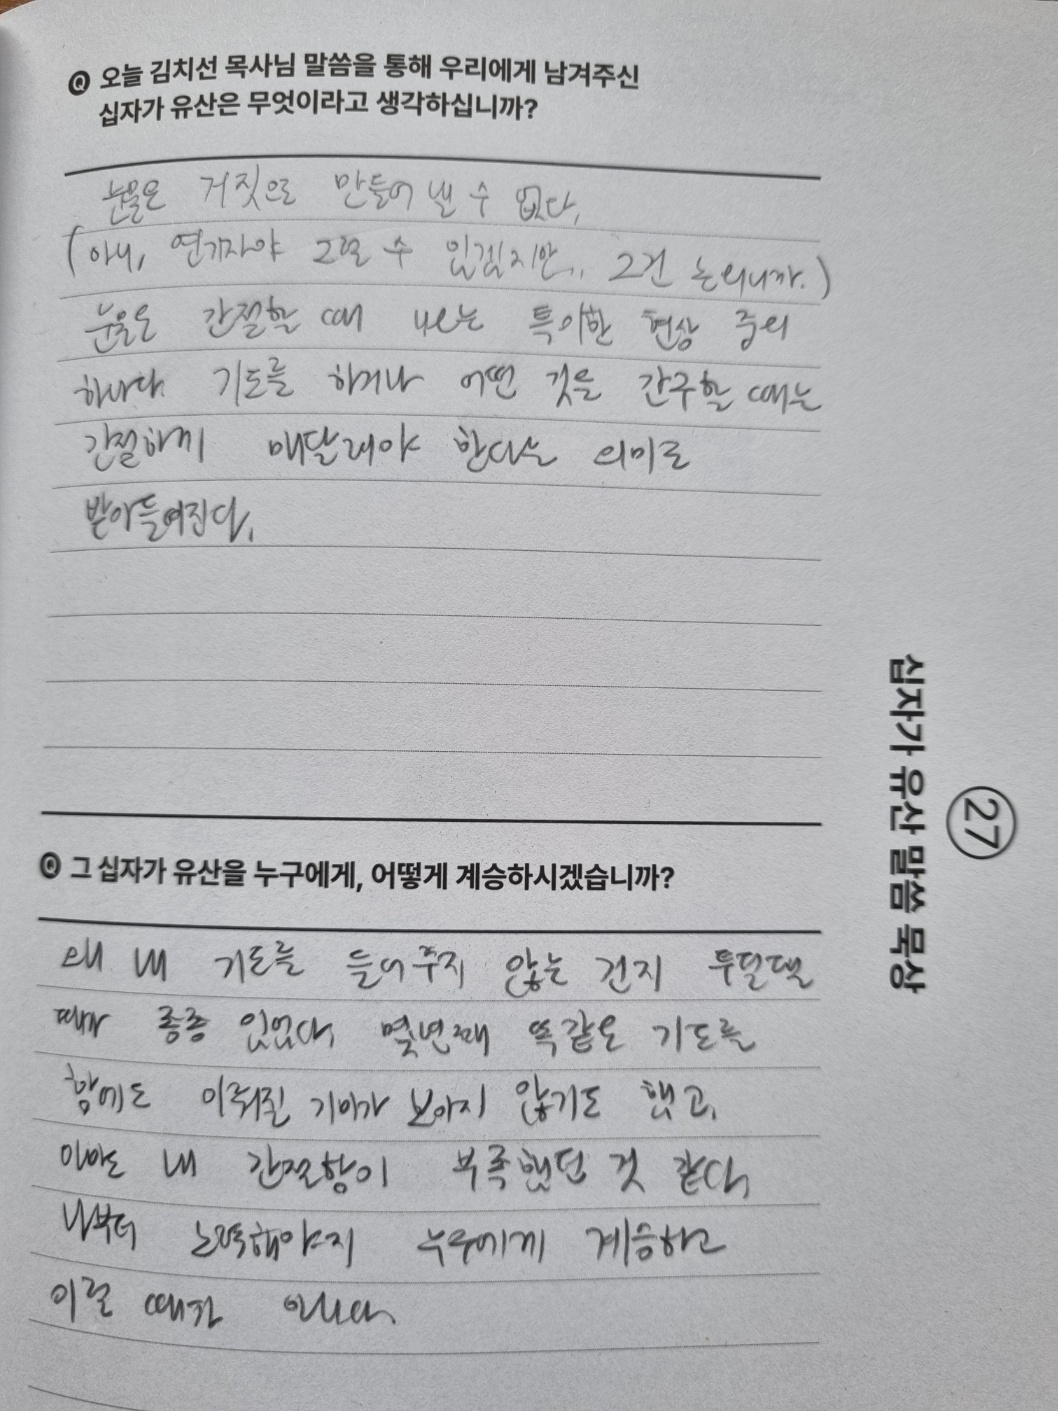 Q 오늘 김치선 목사님 말씀을 통해 우리에게 남겨주신
십자가 유산은 무엇이라고 생각하십니까?
눈물은 거짓으로 만들어 낼 수 없다.
(아니, 연기자야 그럴 수 있겠지만,, 그건 논외니까.)
눈물은 간절할 때 나오는 특이한 현상 중의
하나다. 기도를 하거나 어떤 것을 간구할 때는
간절하게 매달려야 한다는 의미로
받아들여진다.
Q 그 십자가 유산을 누구에게, 어떻게 계승하시겠습니까?
왜 내 기도를 들어주지 않는 건지 투덜댈
때가 종종 있었다. 몇년째 똑같은 기도를
함에도 이뤄질 기미가 보이지 않기도 했고,
아마도 내 간절함이 부족했던 것 같다.
나부터 노력해야지 누구에게 계승하고
이럴 때가 아니다.
십자가 유산 말씀 묵상
27